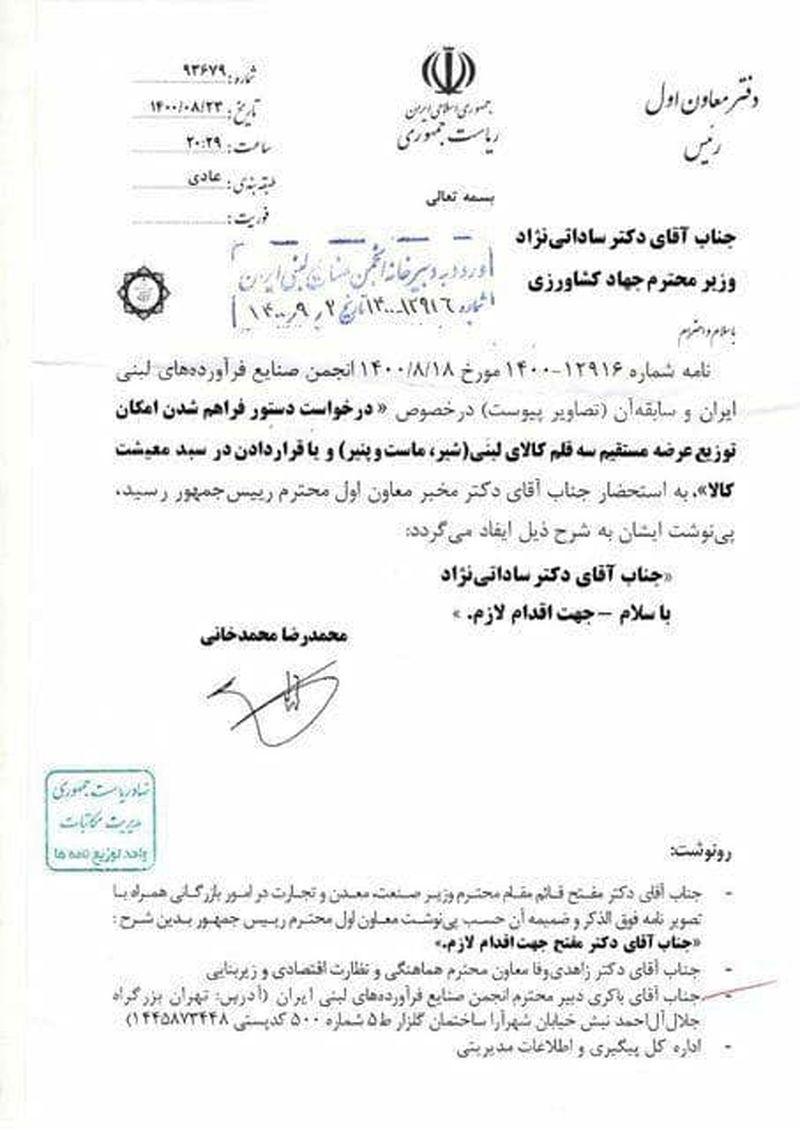 دفتر معاون اول
رئیس
جمهوری اسلامی ایران
ریاست جمهوری
شماره: ۹۳۶۷۹
تاریخ: ۱۴۰۰/۰۸/۲۳
ساعت: ۲۰:۲۹
طبقه بندی: عادی
فوریت:
بسمه تعالی
جناب آقای دکتر ساداتی‌نژاد
وزیر محترم جهاد کشاورزی
ورود به دبیرخانه انجمن صنایع لبنی ایران
شماره ۱۴۰۰-۱۲۹۱۶ تاریخ ۱۴۰۰/۹/۲
با سلام و احترام
نامه شماره ۱۲۹۱۶-۱۴۰۰ مورخ ۱۴۰۰/۸/۱۸ انجمن صنایع فرآورده‌های لبنی
ایران و سابقه‌آن (تصاویر پیوست) درخصوص «درخواست دستور فراهم شدن امکان
توزیع عرضه مستقیم سه قلم کالای لبنی(شیر، ماست و پنیر) و یا قراردادن در سبد معیشت
کالا»، به استحضار جناب آقای دکتر مخبر معاون اول محترم رییس‌جمهور رسید،
پی‌نوشت ایشان به شرح ذیل ایفاد می‌گردد:
«جناب آقای دکتر ساداتی‌نژاد
با سلام – جهت اقدام لازم.»
محمدرضا محمدخانی
نهاد ریاست جمهوری
مدیریت مکاتبات
واحد توزیع نامه ها
رونوشت:
- جناب آقای دکتر مفتح قائم مقام محترم وزیر صنعت، معدن و تجارت در امور بازرگانی همراه با
تصویر نامه فوق الذکر و ضمیمه آن حسب پی‌نوشت معاون اول محترم رییس جمهور بدین شرح:
«جناب آقای دکتر مفتح جهت اقدام لازم.»
- جناب آقای دکتر زاهدی‌وفا معاون محترم هماهنگی و نظارت اقتصادی و زیربنایی
- جناب آقای باکری دبیر محترم انجمن صنایع فرآورده‌های لبنی ایران (آدرس: تهران بزرگراه
جلال‌آل‌احمد نبش خیابان شهرآرا ساختمان گلزار ط۵ شماره ۵۰۰ کدپستی ۱۴۴۵۸۷۳۴۴۸)
- اداره کل پیگیری و اطلاعات مدیریتی